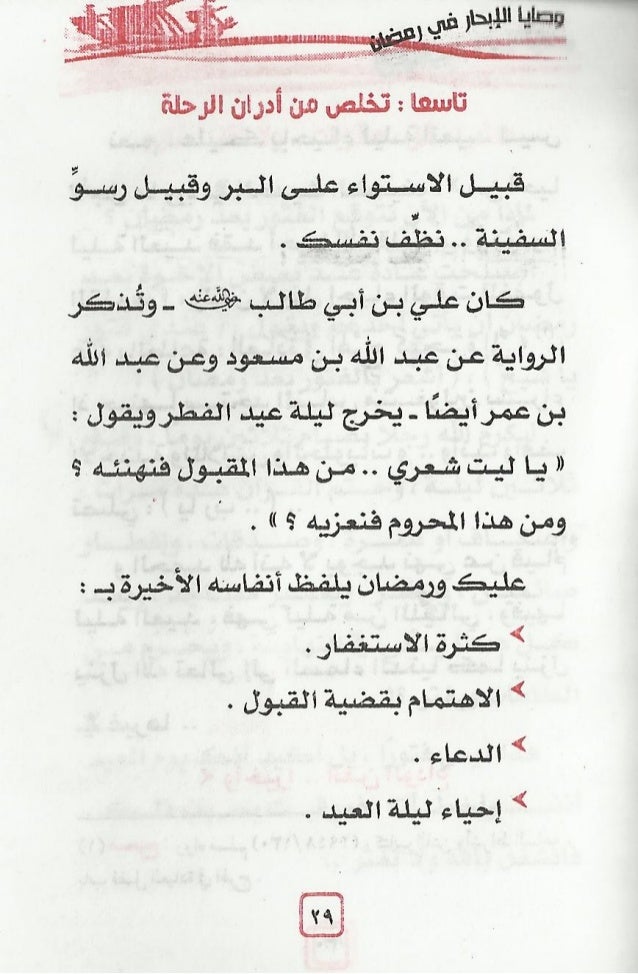 وصايا الإبحار في رمضان
تاسعا : تخلص من أدران الرحلة
قبيل الاستواء على البر وقبيل رسوِّ
السفينة .. نظِّف نفسك .
كان علي بن أبي طالب رضي الله عنه ـ وتُذكر
الرواية عن عبد الله بن مسعود وعن عبد الله
بن عمر أيضًا ـ يخرج ليلة عيد الفطر ويقول :
« يا ليت شعري .. من هذا المقبول فنهنئه ؟
ومن هذا المحروم فنعزيه ؟ » .
عليك ورمضان يلفظ أنفاسه الأخيرة بـ :
كثرة الاستغفار .
الاهتمام بقضية القبول .
الدعاء .
إحياء ليلة العيد .
٢٩